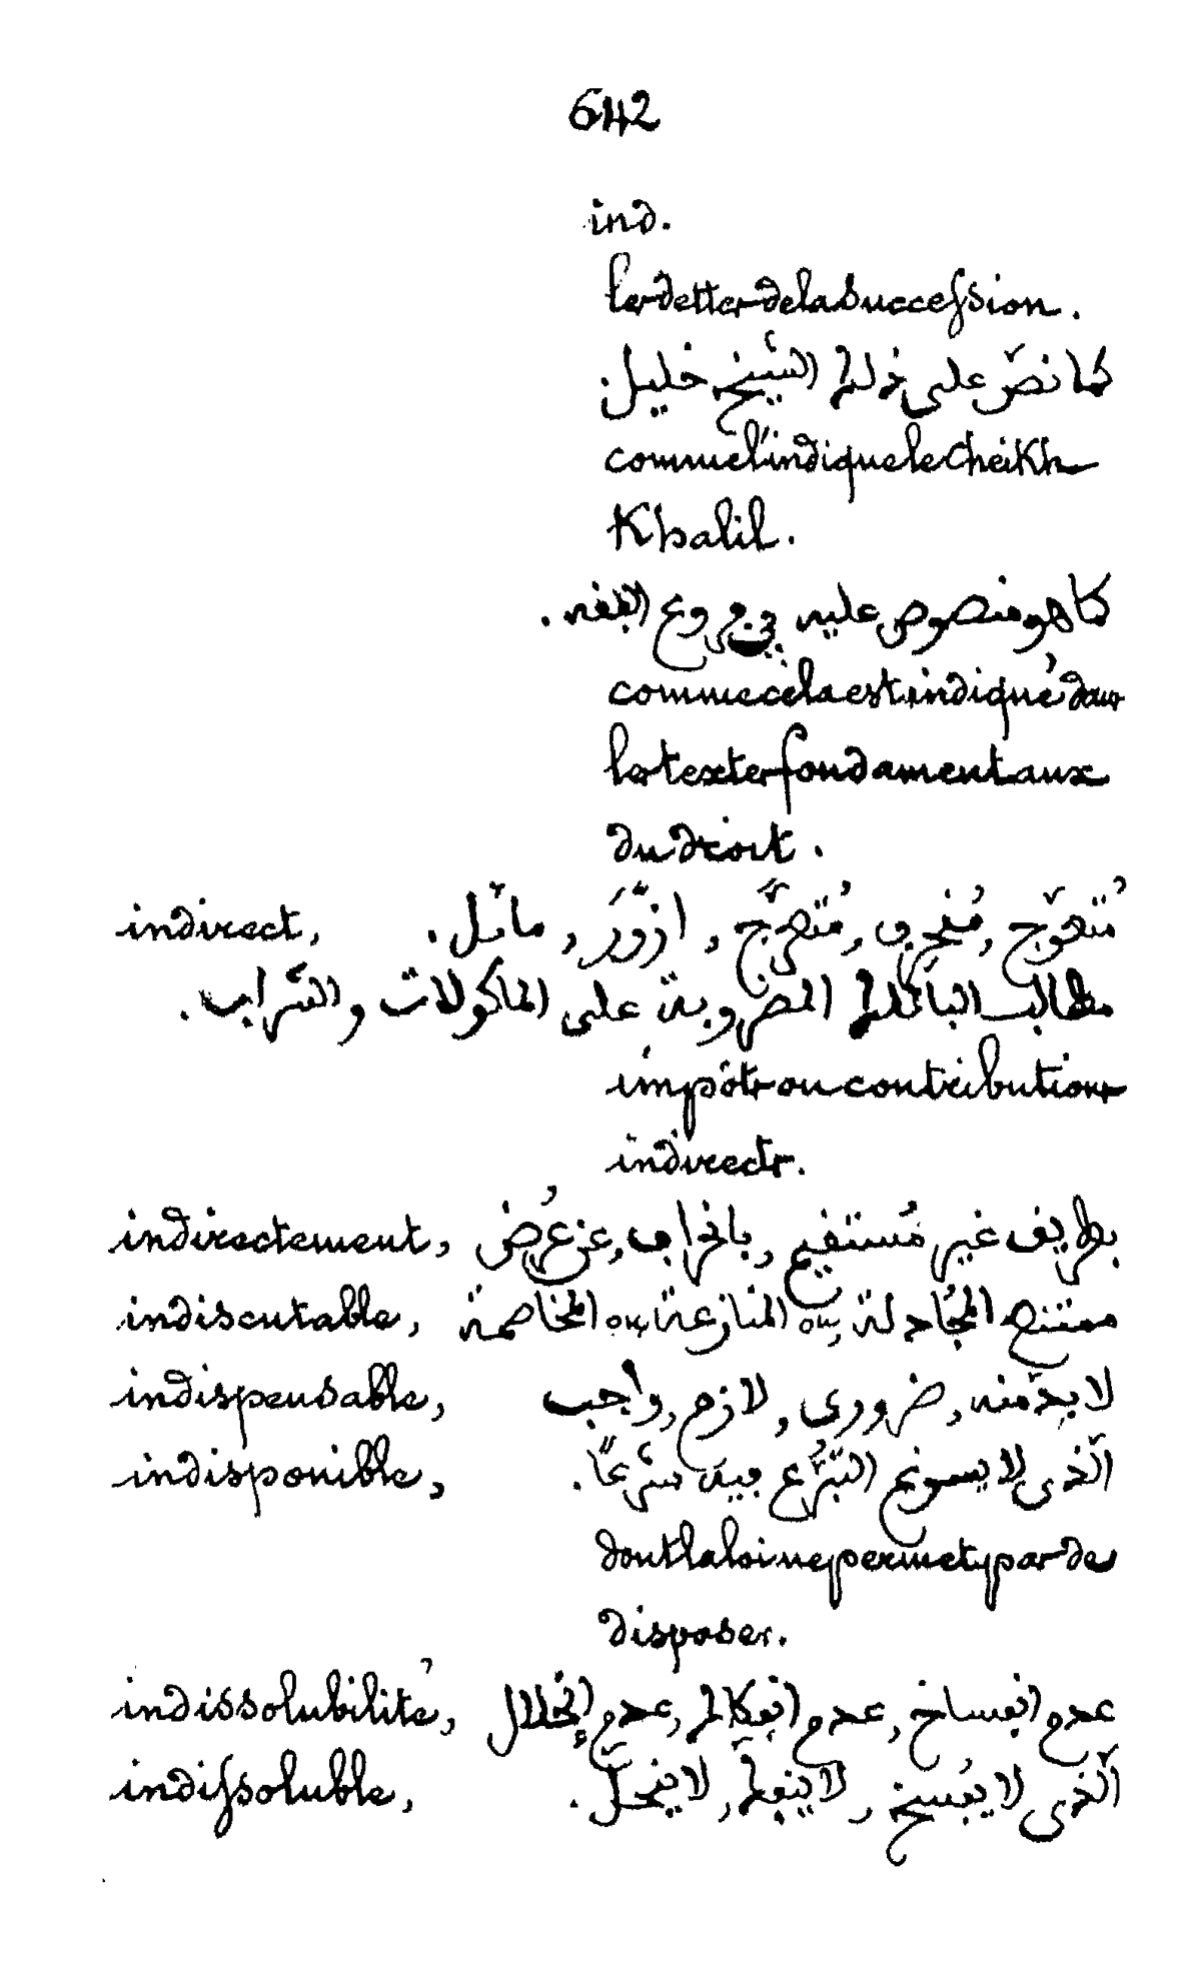 642
ind.
les dettes de la succession.
كما نصّ على ذلك الشّيخ خليل
comme l'indique le Cheikh
Khalil.
كما هو منصوص عليه في فروع الفقه.
comme cela est indiqué dans
les textes fondamentaux
du droit.
indirect, مُتعوّج, مُنحرف, مُتعرّج, ازوّر, مائل.
مطالب البائلك المضروبة على الماكولات والشّراب.
impôts ou contributions
indirects.
indirectement, بطريق غير مُستقيم, بانحراف, عن عُرض
indiscutable, ممتنع المُجادلة المنازعة المخاصمة
indispensable, لا بدّ منه, ضروري, لازم, واجب
indisponible, الّذى لا يسوغ التّبرّع فيه شرعًا.
dont la loi ne permet pas de
disposer.
indissolubilité, عدم انفساخ, عدم انفكاك, عدم إنحلال
indissoluble, الّذى لا يفسخ, لا ينفكّ, لا ينحلّ.